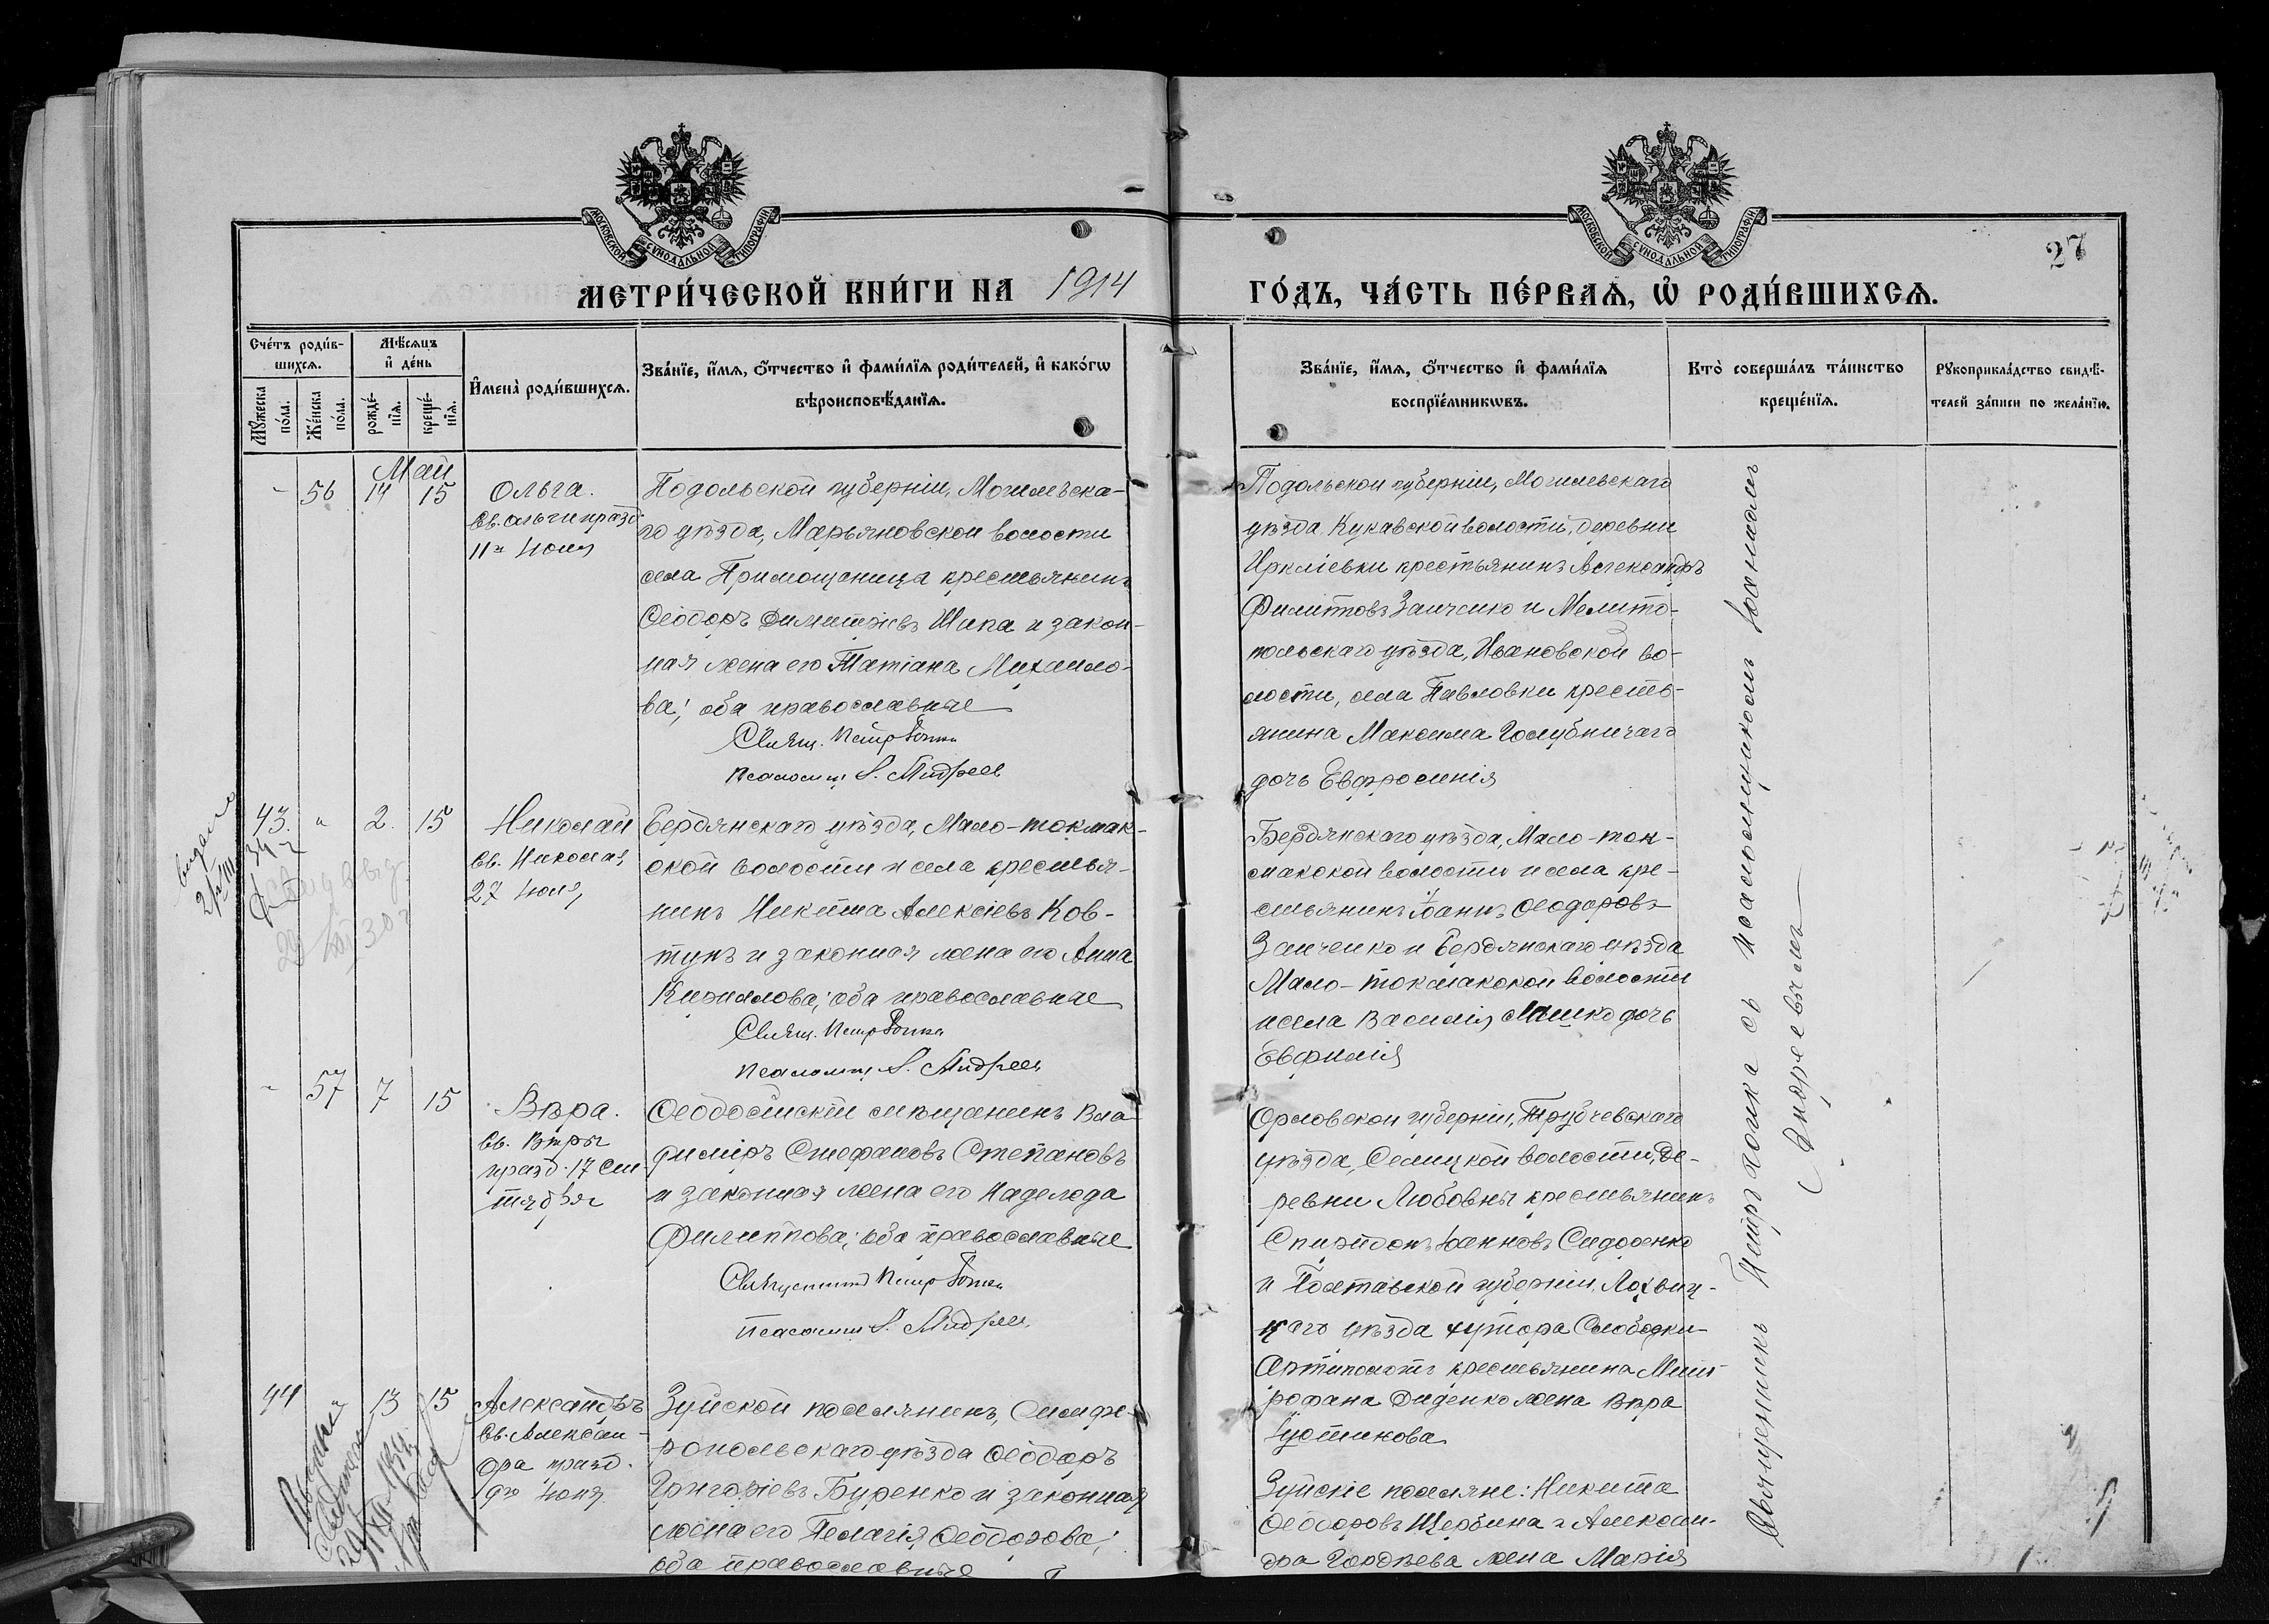 МОСКОВСКОЙ СѴНОДАЛЬНОЙ ТИПОГРАФІИ
МОСКОВСКОЙ СѴНОДАЛЬНОЙ ТИПОГРАФІИ
27
МЕТРИ́ЧЕСКОЙ КНИ́ГИ НА 1914 ГО́ДЪ, ЧА́СТЬ ПЕ́РВАѦ, Ѡ҆ РОДИ́ВШИХСѦ.
Сче́тъ роди́в-
шихсѧ.
Мꙋ́жеска
по́ла.
Же́нска
по́ла.
Мѣ́сѧцъ
и҆ де́нь
рожде́-
нїѧ.
креще́-
нїѧ.
И҆мена̀ роди́вшихсѧ.
Зва́нїе, и҆́мѧ, ѻ҆́тчество и҆ фами́лїѧ роди́телей, и҆ како́гѡ
вѣроисповѣ́данїѧ.
Зва́нїе, и҆́мѧ, ѻ҆́тчество и҆ фами́лїѧ
воспрїе́мникѡвъ.
Кто̀ соверша́лъ та́инство
креще́нїѧ.
Рꙋкоприкла́дство свидѣ́-
телей за́писи по жела́нїю.
Май
- 56 14 15
Ольга.
Св. Ольги празд.
11го Іюля
Подольской губерніи, Могилевска-
го уѣзда, Марьяновской волости
села Примощаница крестьянинъ
Ѳеодоръ Димитріевъ Шипа и закон-
ная жена его Татіана Михаило-
ва; оба православные
Свящ. Петръ
Псаломщ. Андреев
Подольской губерніи, Могилевскаго
уѣзда Кукавской волости, деревни
Ирклиевки крестьянинъ Александръ
Филипповъ Заиченко и Мелито-
польскаго уѣзда, Ивановской во-
лости, села Павловки кресть-
янина Максима Голубничаго
дочь Евфросинія
43. " 2. 15
выдано
Николай
Св. Николая
27 Іюля
Бердянскаго уѣзда, Мало-токмак-
ской волости и села крестья-
нинъ Никита Алексіевъ Ков-
тунъ и законная жена его Анна
Кириллова; оба православные
Свящ. Петръ
Псаломщ. Андреев
Бердянскаго уѣзда, Мало-ток-
макской волости и села кре-
стьянинъ Іоаннъ Ѳеодоровъ
Заиченко и Бердянскаго уѣзда
Мало-токмакской волости
и села Василія Машко дочь
Евфимія
- 57 7 15
Вѣра.
Св. Вѣры
празд. 17 Сен
тября
Ѳеодосійскій мѣщанинъ Вла-
диміръ Стефановъ Степановъ
и законная жена его Надежда
Филиппова; оба православные
Священникъ Петръ
Псаломщ. Андреев
Орловской губерніи, Трубчевскаго
уѣзда, Селицкой волости, де-
ревни Любовны крестьянинъ
Спиридонъ Іоанновъ Сидоренко
и Полтавской губерніи, Лохвиц-
каго уѣзда хутора Слободки-
крестьянина Мит
рофана Диденко жена Вѣра
Іустинова
44 " 13 15
Александръ
Св. Алексан-
дра празд.
9го Іюня
Зуйской поселянинъ, Симфе-
ропольскаго уѣзда Ѳеодоръ
Григоріевъ Буренко и законная
жена его Пелагія Ѳеодорова;
оба православные
Зуйскіе поселяне: Никита
Ѳеодоровъ Щербина и Алексан-
дра Гордѣева жена Марія
Священникъ Петръ съ псаломщикомъ Іоанномъ
Андреевымъ